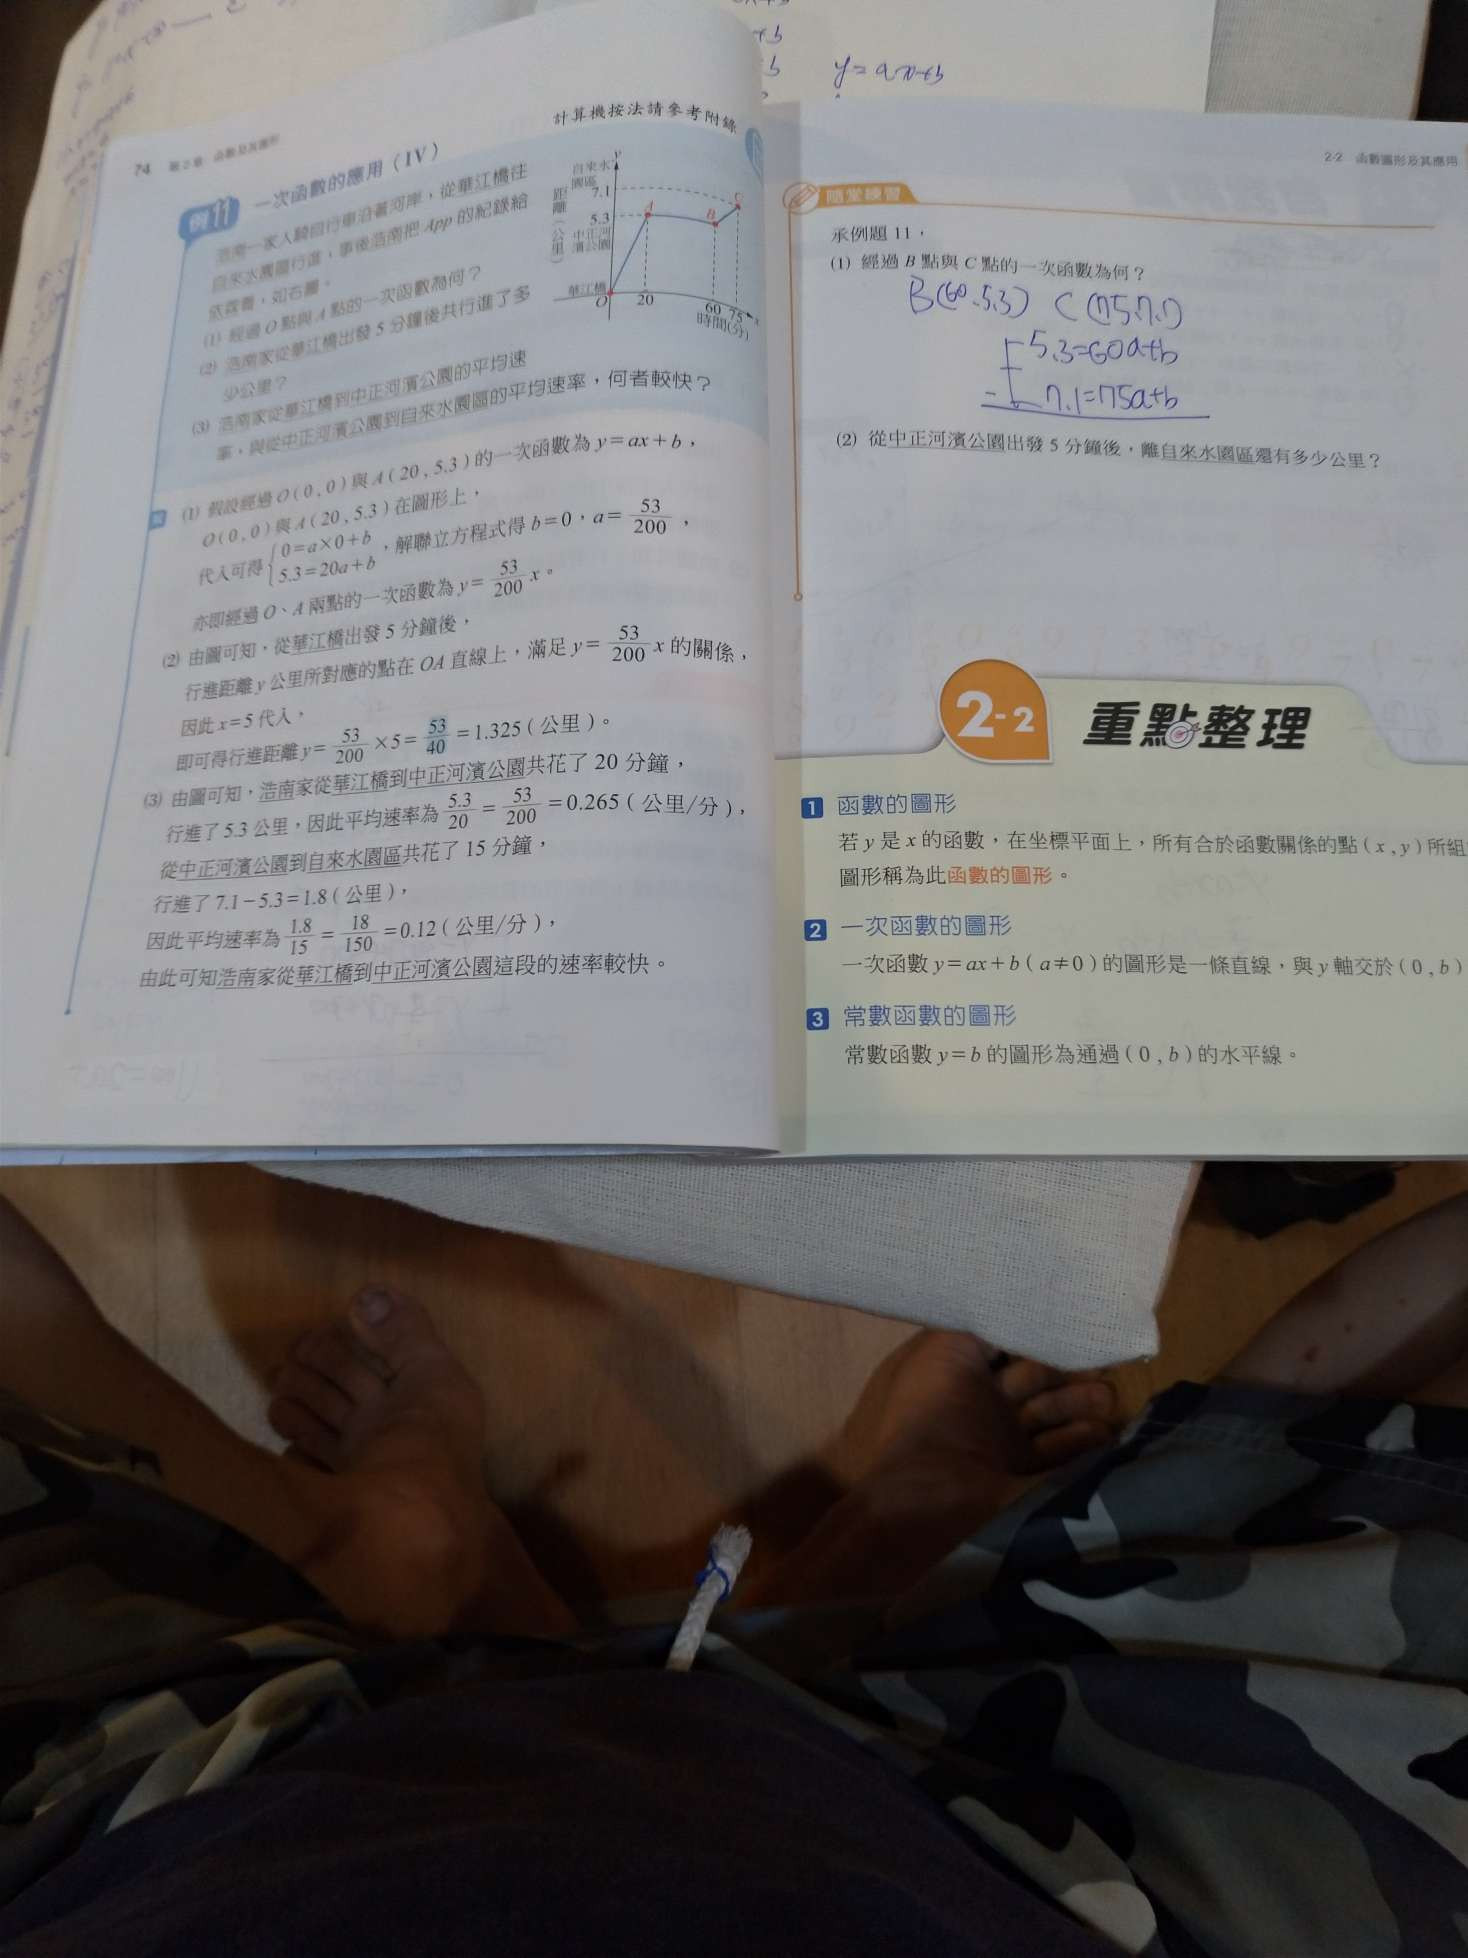 y=ax+b
74 第2章 函數及其圖形
計算機按法請參考附錄
例11 一次函數的應用（IV）
浩南一家人騎自行車沿著河岸，從華江橋往
自來水園區行進，事後浩南把 App 的紀錄給
依霖看，如右圖。
(1) 經過 O 點與 A 點的一次函數為何？
(2) 浩南家從華江橋出發 5 分鐘後共行進了多
少公里？
(3) 浩南家從華江橋到中正河濱公園的平均速
率，與從中正河濱公園到自來水園區的平均速率，何者較快？
y
自來水
園區 7.1
距離（公里）
5.3
中正河
濱公園
A
B
C
華江橋
O 20 60 75 x
時間(分)
解 (1) 假設經過 O(0,0) 與 A(20,5.3) 的一次函數為 y=ax+b，
O(0,0) 與 A(20,5.3) 在圖形上，
代入可得 { 0=a×0+b 5.3=20a+b ，解聯立方程式得 b=0，a=53/200，
亦即經過 O、A 兩點的一次函數為 y=53/200 x。
(2) 由圖可知，從華江橋出發 5 分鐘後，
行進距離 y 公里所對應的點在 OA 直線上，滿足 y=53/200 x 的關係，
因此 x=5 代入，
即可得行進距離 y=53/200×5=53/40=1.325（公里）。
(3) 由圖可知，浩南家從華江橋到中正河濱公園共花了 20 分鐘，
行進了 5.3 公里，因此平均速率為 5.3/20=53/200=0.265（公里/分），
從中正河濱公園到自來水園區共花了 15 分鐘，
行進了 7.1−5.3=1.8（公里），
因此平均速率為 1.8/15=18/150=0.12（公里/分），
由此可知浩南家從華江橋到中正河濱公園這段的速率較快。
2-2 函數圖形及其應用
隨堂練習
承例題 11，
(1) 經過 B 點與 C 點的一次函數為何？
B(60.5.3) C(75.7.1)
5.3=60a+b
- 7.1=75a+b
(2) 從中正河濱公園出發 5 分鐘後，離自來水園區還有多少公里？
2-2 重點整理
1 函數的圖形
若 y 是 x 的函數，在坐標平面上，所有合於函數關係的點(x,y)所組
圖形稱為此函數的圖形。
2 一次函數的圖形
一次函數 y=ax+b（a≠0）的圖形是一條直線，與 y 軸交於(0,b)
3 常數函數的圖形
常數函數 y=b 的圖形為通過(0,b)的水平線。